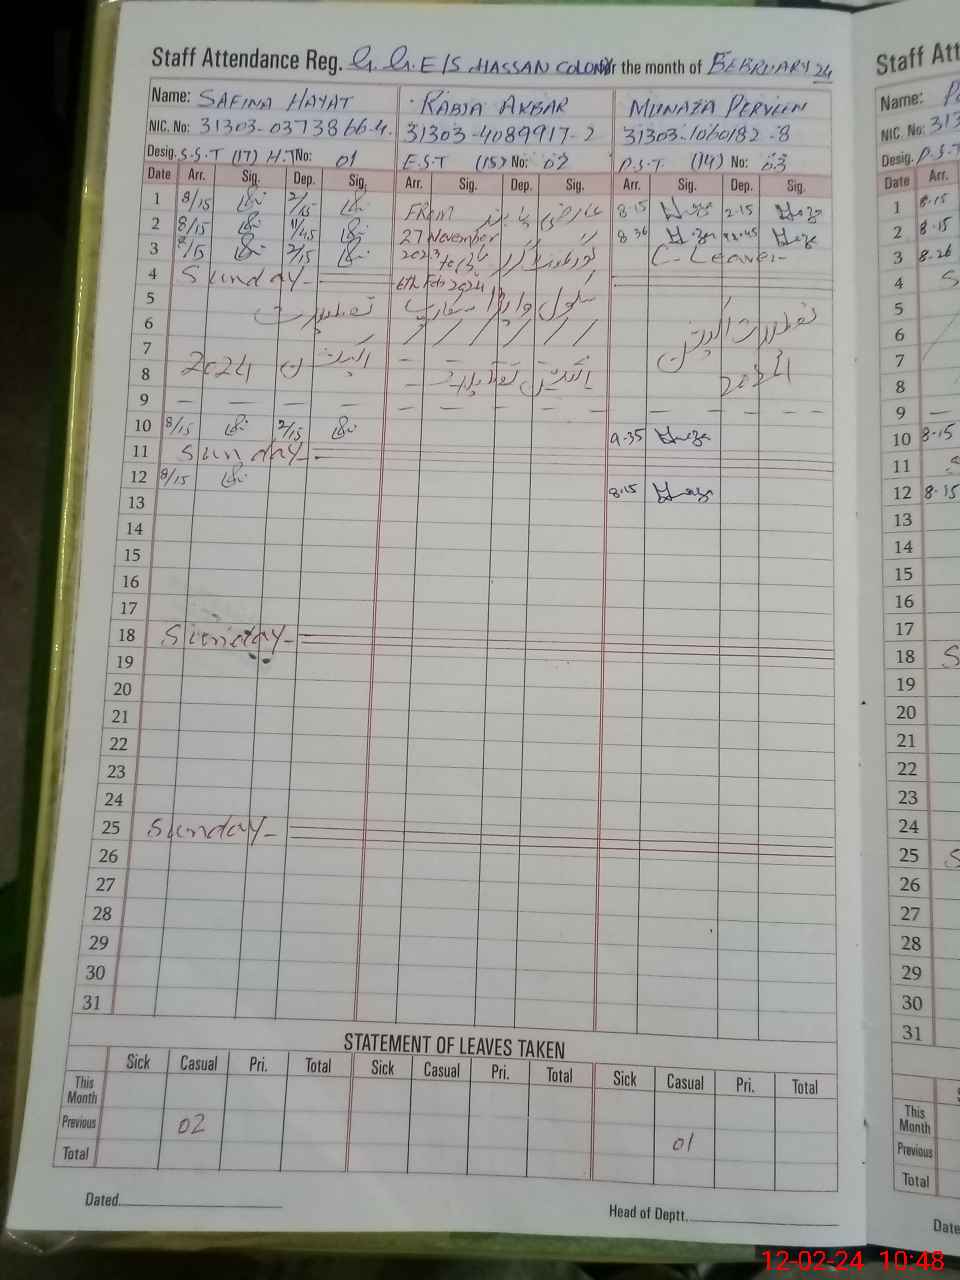 Staff Attendance Reg. G. G. E/S HASSAN COLONY for the month of FEBRUARY 24
Staff Att
Name: SAFINA HAYAT RABIA AKBAR MUNAZA PERVEEN
Name:
NIC. No: 31303-0373866-4 31303-4089917-2 31303-1060182-8
NIC. No: 313
Desig. S.S.T (17) H.T No: 01 E.S.T (15) No: 02 P.S.T (14) No: 03
Desig. P.S.T
Date Arr. Sig. Dep. Sig. Arr. Sig. Dep. Sig. Arr. Sig. Dep. Sig.
Date Arr.
1 8/15 2/15 FROM عارضی 8-15 2-15
1 8-15
2 8/15 11/45 27 November 8-36 11-45
2 8-15
3 8/15 2/15 2023 to C-Leave-
3 8-26
4 Sunday- 6th Feb 2024
4 S
5 تعطیلات سکول
5
6 تعطیلات الیکشن
6
7 الیکشن
7
8 2024 الیکشن تعطیلات 2024
8
9 — — — — — — — — — — — —
9 —
10 8/15 2/15 9-35
10 8-15
11 Sunday-
11 S
12 8/15 8-15
12 8-15
13
13
14
14
15
15
16
16
17
17
18 Sunday-
18 S
19
19
20
20
21
21
22
22
23
23
24
24
25 Sunday-
25 S
26
26
27
27
28
28
29
29
30
30
31
31
STATEMENT OF LEAVES TAKEN
Sick Casual Pri. Total Sick Casual Pri. Total Sick Casual Pri. Total
This Month
This Month
Previous 02 01
Previous
Total
Total
Dated
Head of Deptt.
Date
12-02-24 10:48